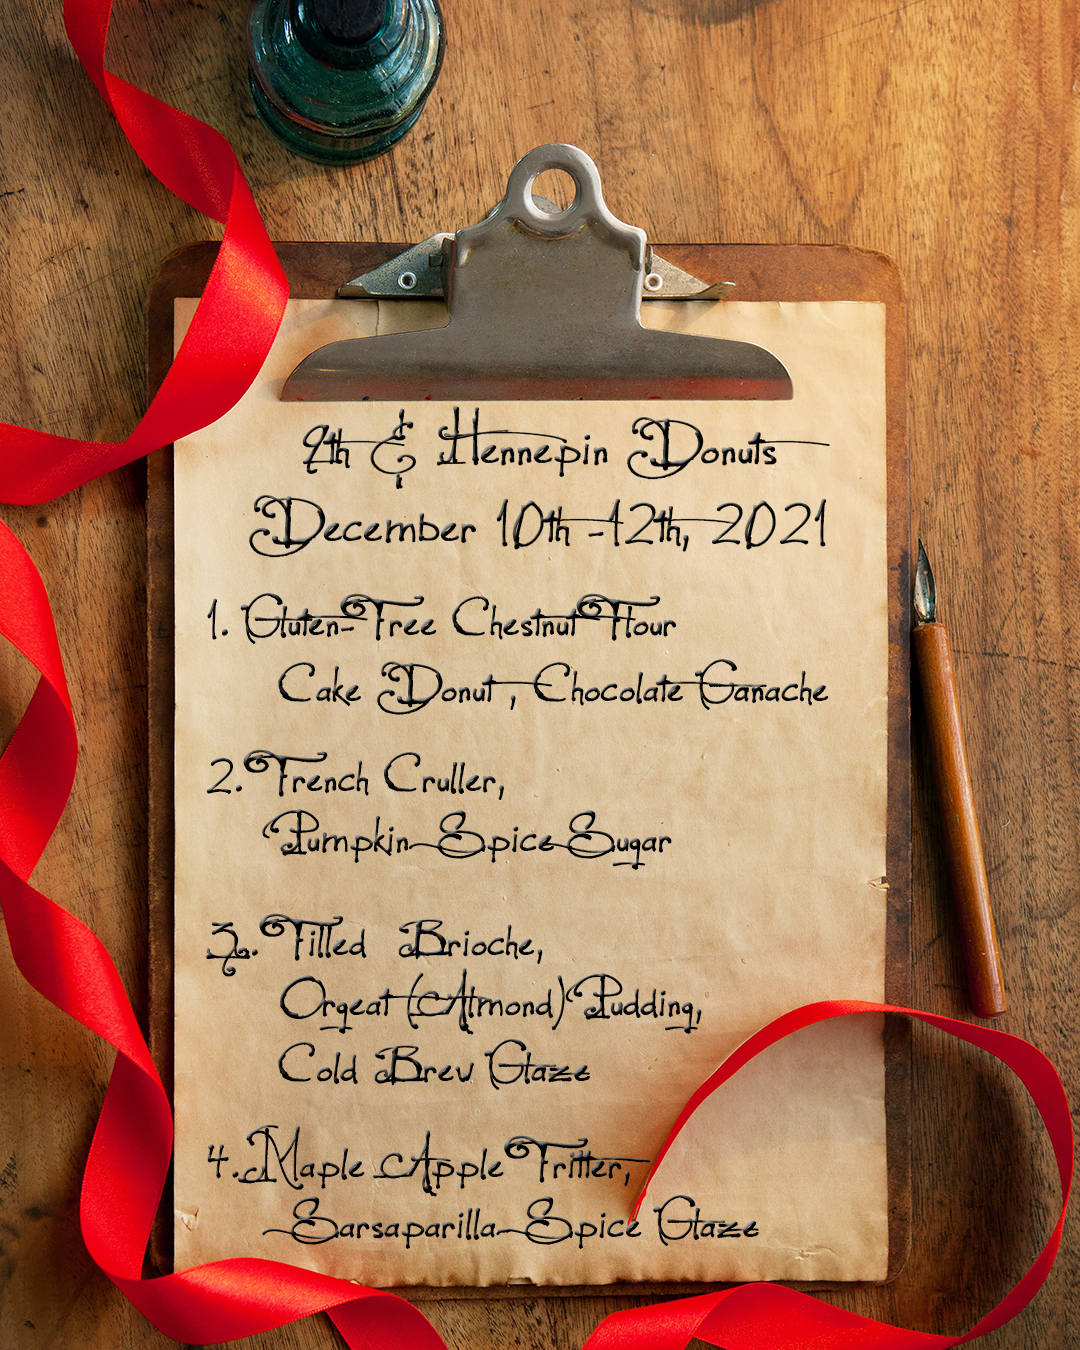 9th & Hennepin Donuts
December 10th -12th, 2021
1. Gluten-Free Chestnut Flour
Cake Donut , Chocolate Ganache
2. French Cruller,
Pumpkin Spice Sugar
3. Filled Brioche,
Orgeat (Almond) Pudding,
Cold Brew Glaze
4. Maple Apple Fritter,
Sarsaparilla Spice Glaze